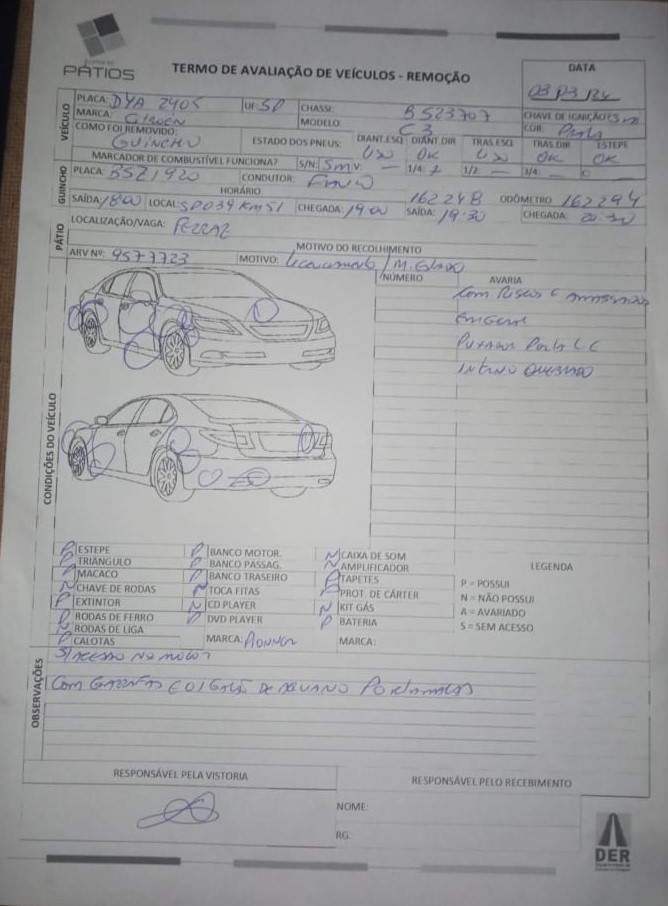 PÁTIOS
TERMO DE AVALIAÇÃO DE VEÍCULOS - REMOÇÃO
DATA
VEÍCULO
PLACA: DYA 2405 UF: SP CHASSI: B523707 CHAVE DE IGNIÇÃO: Sim
MARCA: Citroen MODELO: C3 COR: Prata
COMO FOI REMOVIDO: GUINCHO ESTADO DOS PNEUS: DIANT.ESQ DIANT.DIR OK TRAS.ESQ TRAS.DIR OK ESTEPE OK
MARCADOR DE COMBUSTÍVEL FUNCIONA? S/N: Sim V: — 1/4: 1/2: — 3/4: — C:
GUINCHO
PLACA: CONDUTOR:
HORÁRIO
SAÍDA: 1800 LOCAL: SP039 KM51 CHEGADA: 1900 SAÍDA: 19:30 162248 ODÔMETRO 162294 CHEGADA: 20:30
PÁTIO
LOCALIZAÇÃO/VAGA: FERRAZ
MOTIVO DO RECOLHIMENTO
ARV Nº: 9577723 MOTIVO: Licenciamento /
CONDIÇÕES DO VEÍCULO
NÚMERO AVARIA
com Riscos e amassados
em Geral
Puxador Porta
interno Quebrado
P ESTEPE P BANCO MOTOR. N CAIXA DE SOM
P TRIÂNGULO P BANCO PASSAG. N AMPLIFICADOR LEGENDA
P MACACO P BANCO TRASEIRO P TAPETES P = POSSUI
N CHAVE DE RODAS N TOCA FITAS PROT. DE CÁRTER N = NÃO POSSUI
P EXTINTOR N CD PLAYER N KIT GÁS A = AVARIADO
P RODAS DE FERRO P DVD PLAYER P BATERIA S = SEM ACESSO
N RODAS DE LIGA MARCA: MARCA:
P CALOTAS
OBSERVAÇÕES
S/ ACESSO NO MOTOR
Com GARRAFAS E 01 GALÃO DE NO Porta malas
RESPONSÁVEL PELA VISTORIA RESPONSÁVEL PELO RECEBIMENTO
NOME:
RG:
DER